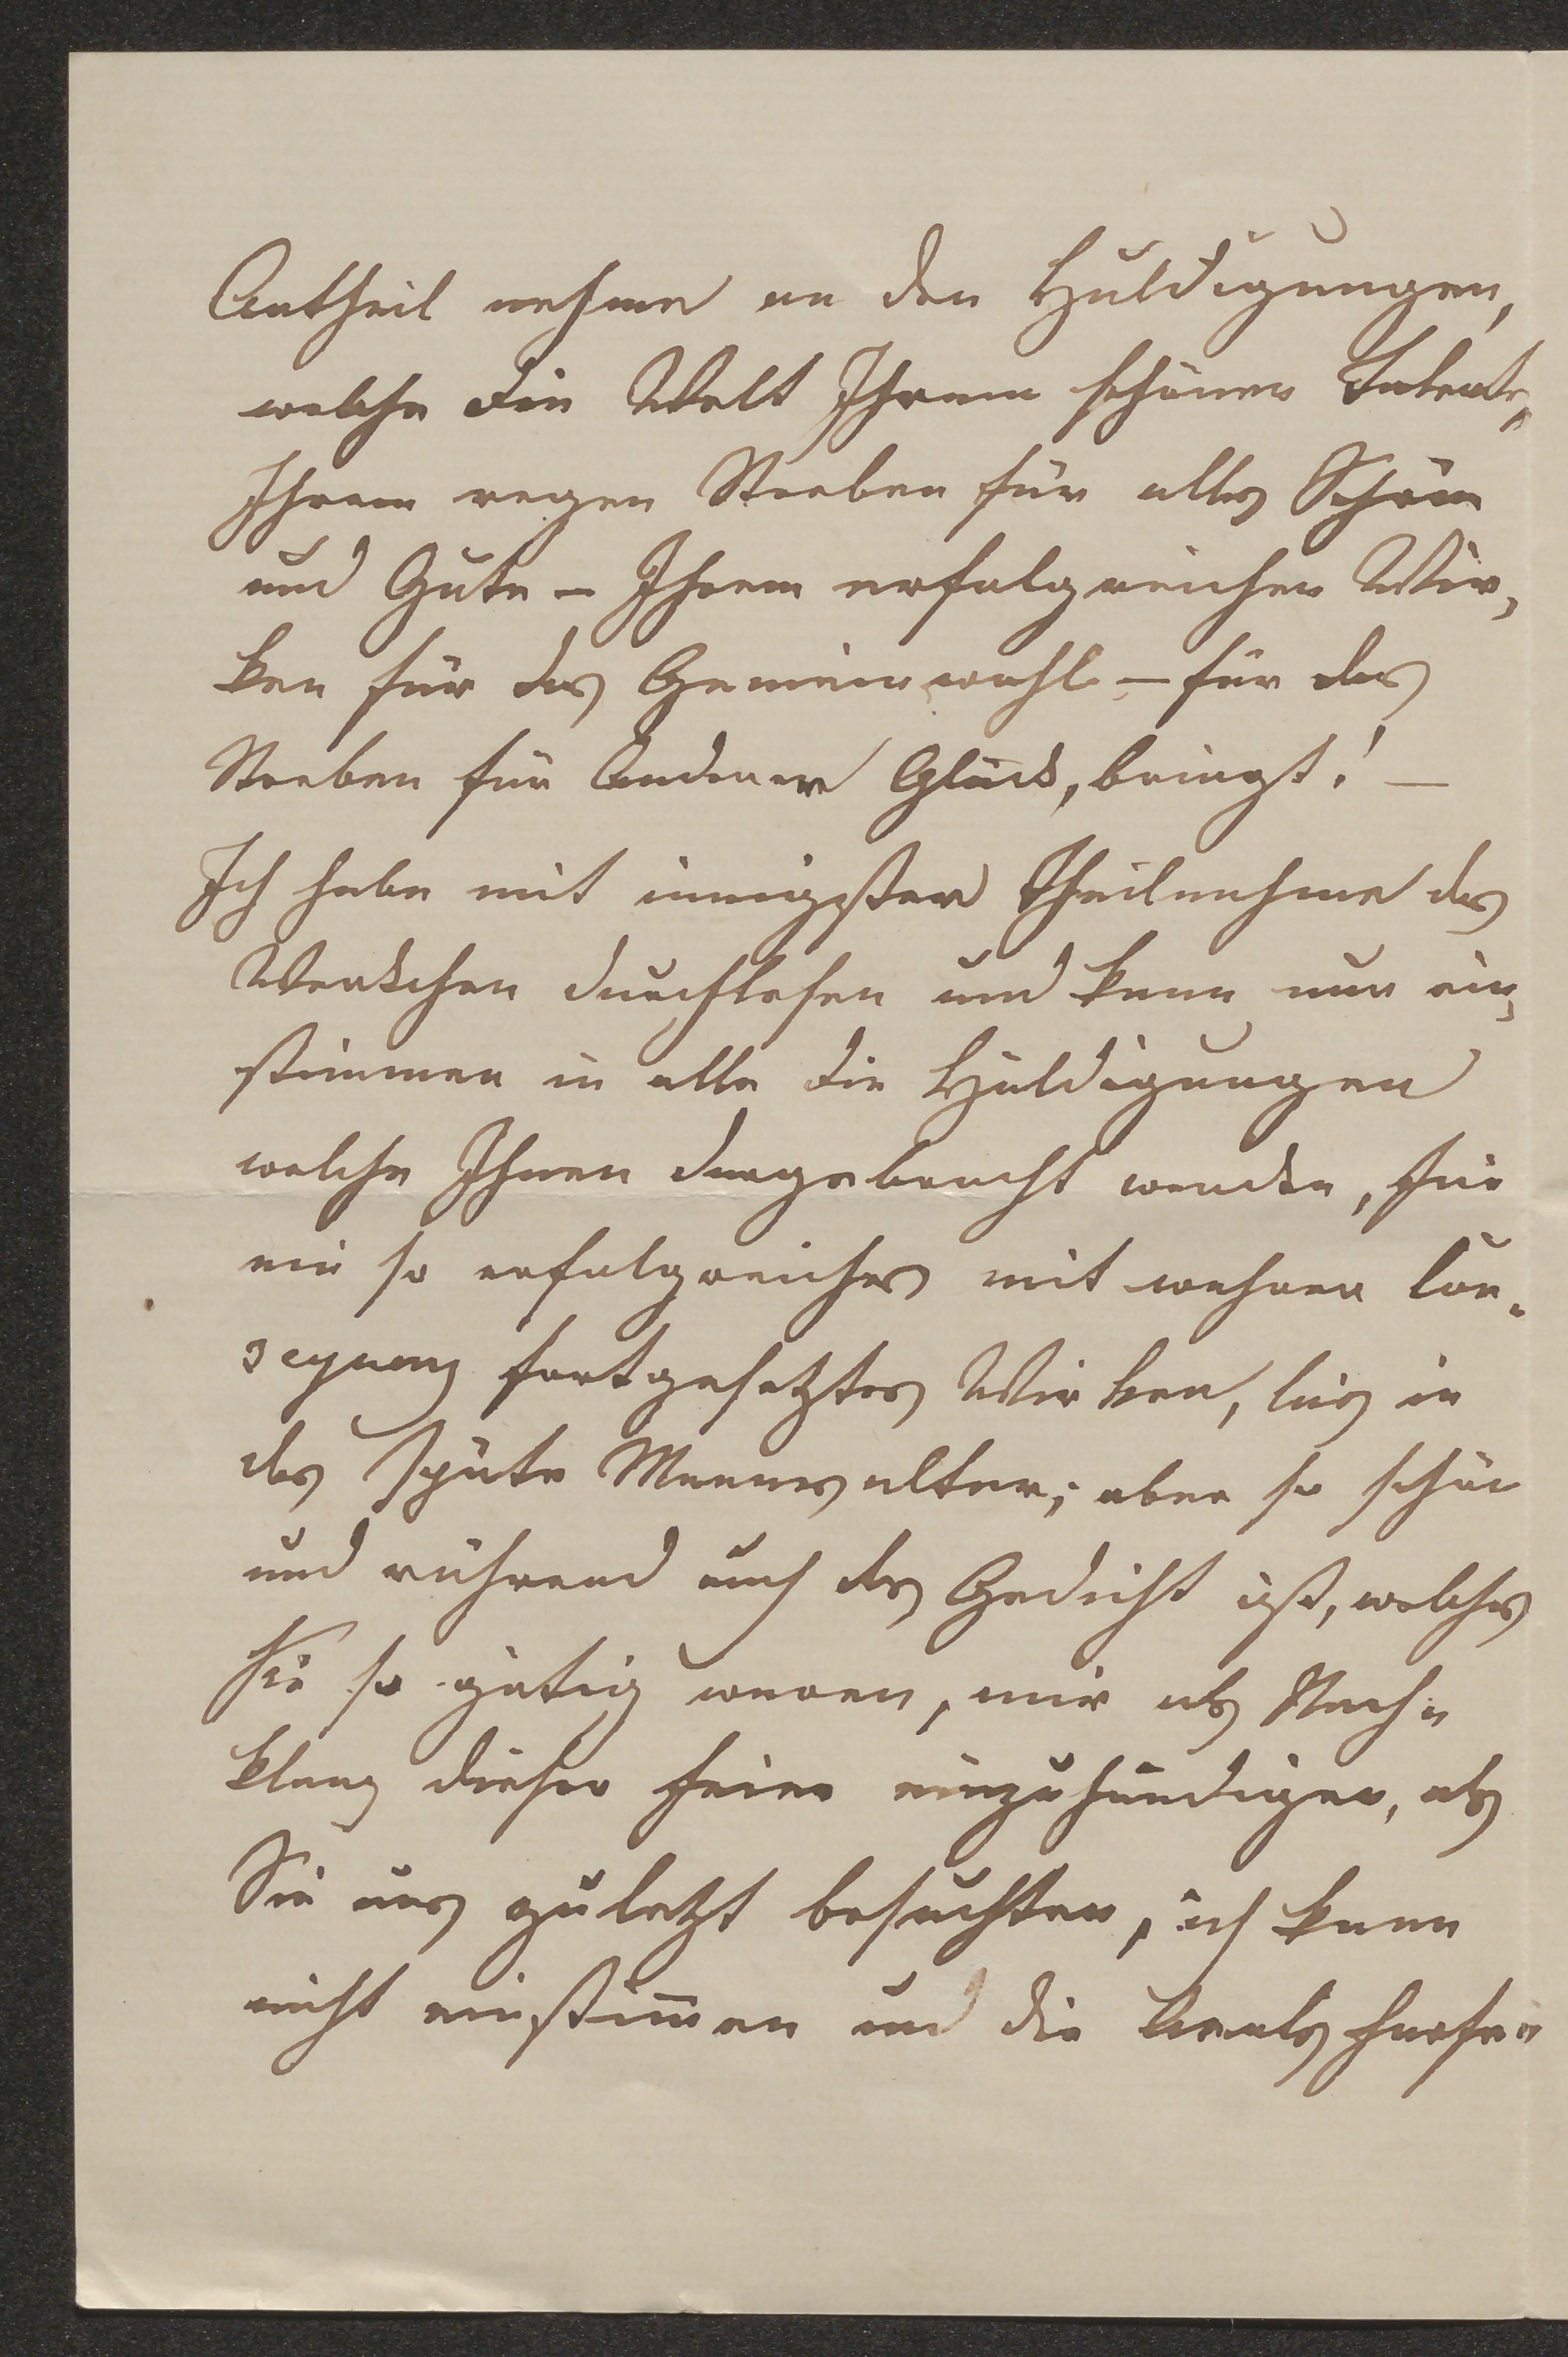 Antheil nehme an den Huldigungen,
welche die Welt Ihrem schönen Talente,
Ihrem regen Streben für alles Schöne
und Gute – Ihrem erfolgreichen Wir,
ken für das Gemeinwohl – für das
Streben für Anderer Glück, bringt! –
Ich habe mit innigster Theilnahme das
Werkchen durchlesen und kann nur ein,
stimmen in alle die Huldigungen
welche Ihnen dargebracht werden, für
ein so erfolgreiches mit wahrer
fortgesetztes Wirken, bis in
das späte Mannesalter; aber so schön
und rührend auch das Gedicht ist, welches
Sie so gütig waren, mir als Nach-
klang dieser Feier einzuhändigen, als
Sie uns zuletzt besuchten, ich kann
nicht einstimmen und die